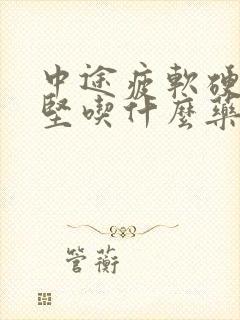 中途疲軟硬
堅喫什麼藥
管蘅